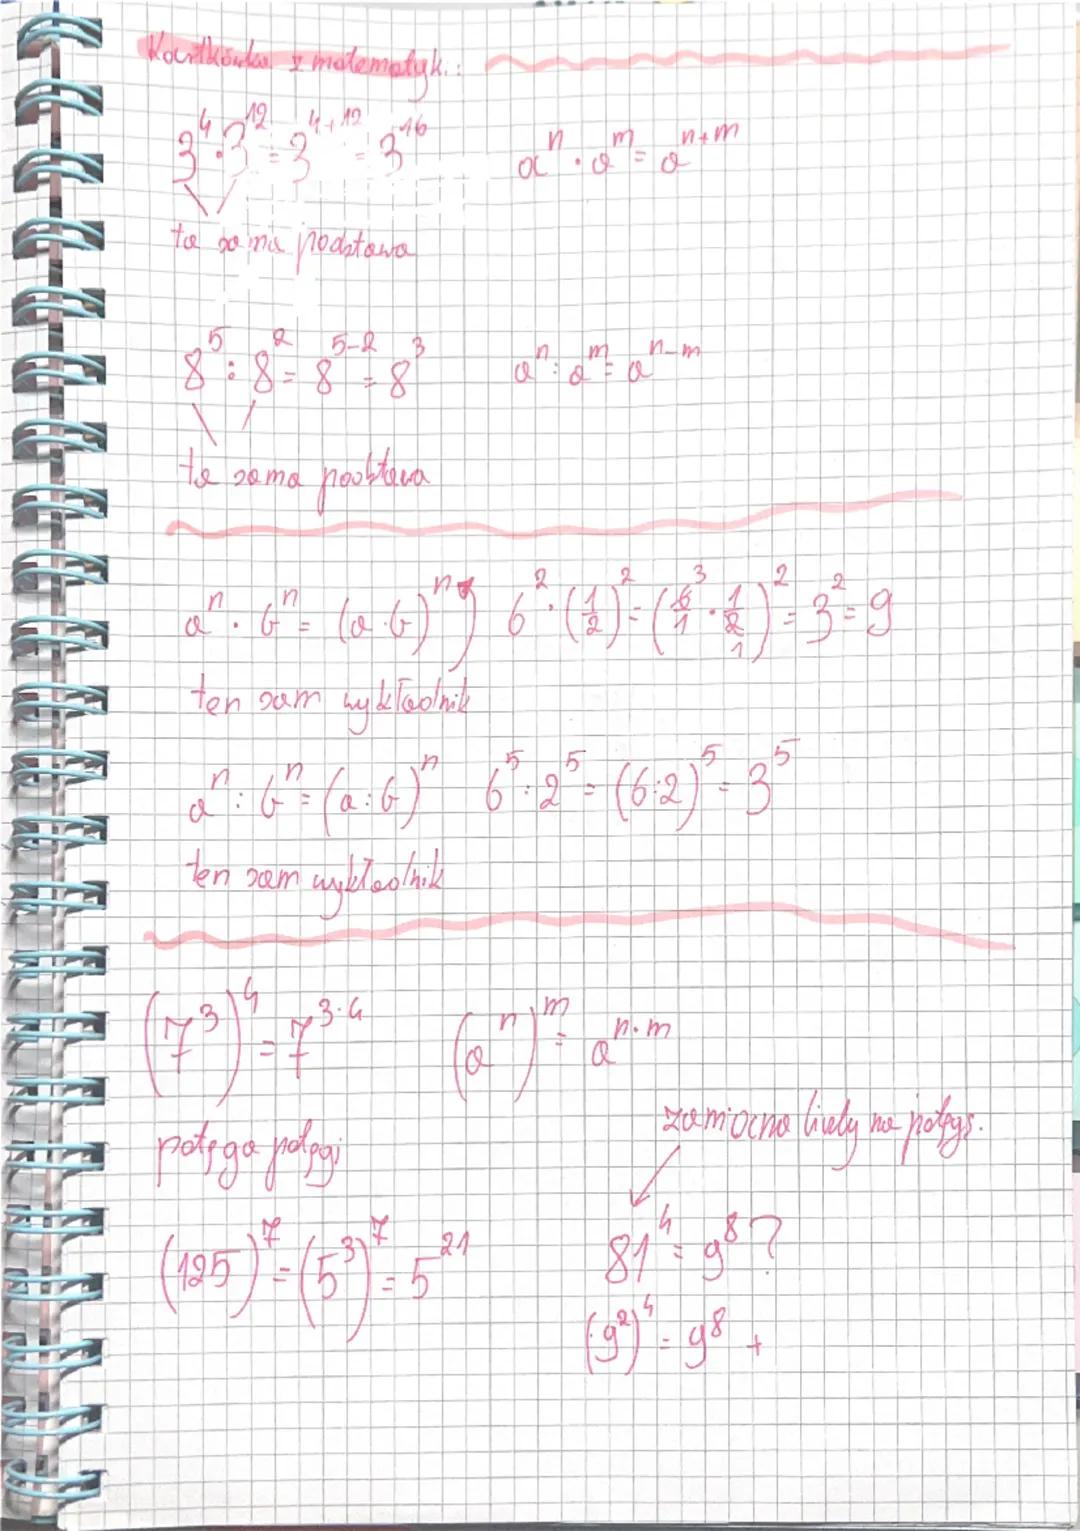 Kartkówka z matematyk.:
3⁴·3¹² = 3⁴⁺¹² = 3¹⁶ aⁿ · aᵐ = aⁿ⁺ᵐ
ta sama podstawa
8⁵ : 8² = 8⁵⁻² = 8³ aⁿ : aᵐ = aⁿ⁻ᵐ
ta sama podstawa
aⁿ · bⁿ = (a·b)ⁿ 6² · (1/2)² = (6/1 · 1/2)² = 3² = 9
ten sam wykładnik
aⁿ : bⁿ = (a:b)ⁿ 6⁵ : 2⁵ = (6:2)⁵ = 3⁵
ten sam wykładnik
(7³)⁴ = 7³·⁴ (aⁿ)ᵐ = aⁿ·ᵐ
zamiana liczby na potęgę.
potęga potęgi
(125)⁷ = (5³)⁷ = 5²¹ 81⁴ = 9⁸ ?
(9²)⁴ = 9⁸ +